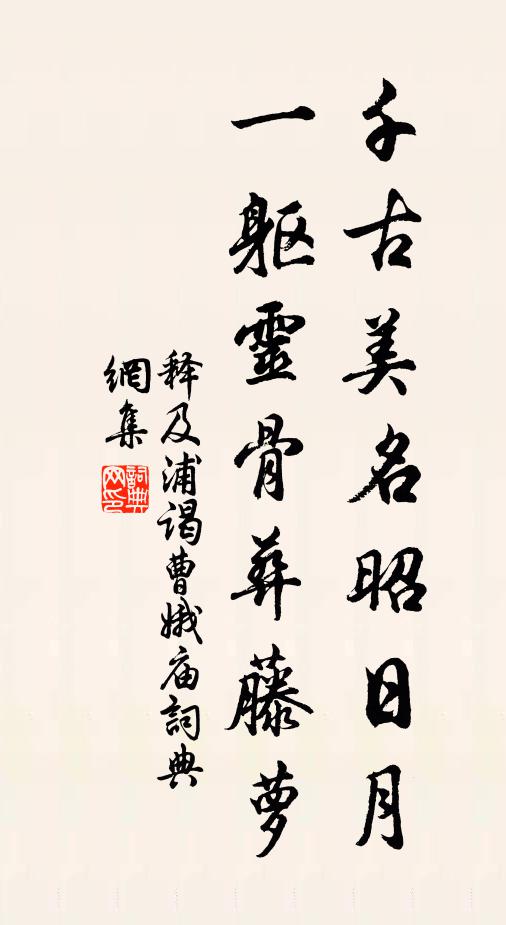 千古美名昭日月
一躯靈骨葬藤萝
释及浦谒曹娥庙詞典
網集
詞典
网印